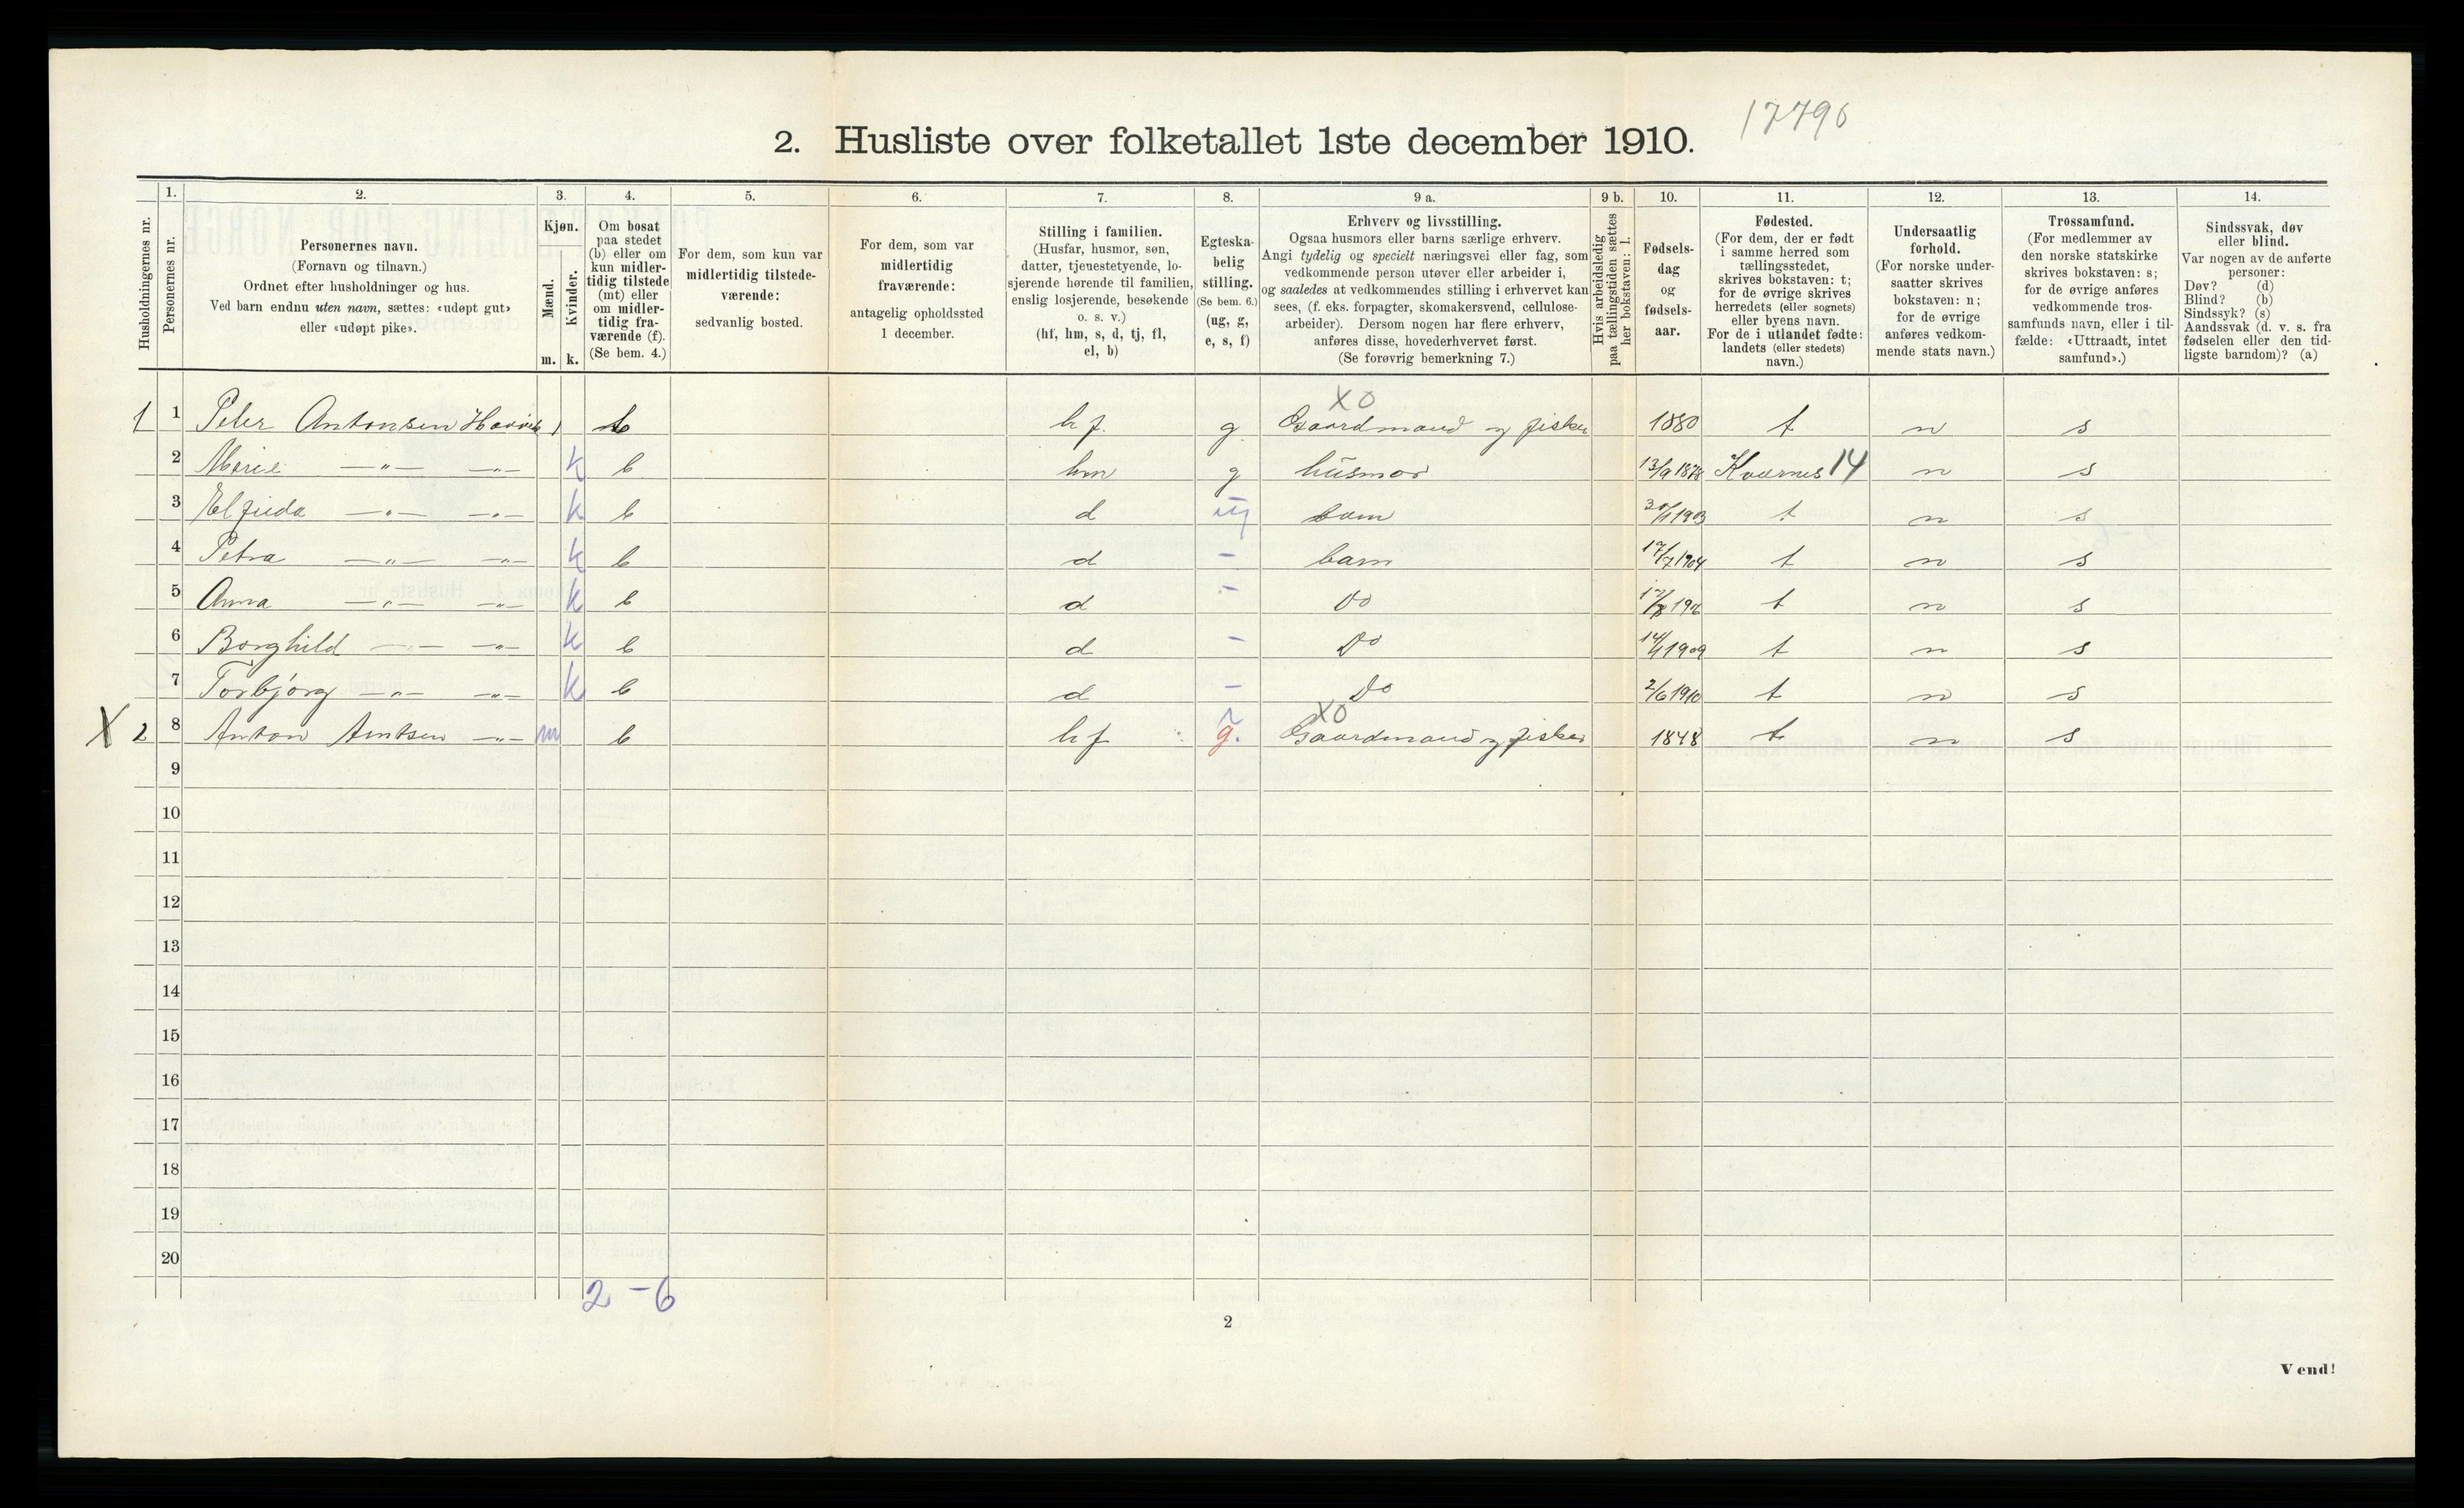 17796
2. Husliste over folketallet 1ste december 1910.
Husholdningernes nr.
1. Personernes nr.
2. Personernes navn.
(Fornavn og tilnavn.)
Ordnet efter husholdninger og hus.
Ved barn endnu uten navn, sættes: «udøpt gut»
eller «udøpt pike».
3. Kjøn.
Mænd. Kvinder.
m. k.
4. Om bosat
paa stedet
(b) eller om
kun midler-
tidig tilstede
(mt) eller
om midler-
tidig fra-
værende (f).
(Se bem. 4.)
5. For dem, som kun var
midlertidig tilstede-
værende:
sedvanlig bosted.
6. For dem, som var
midlertidig
fraværende:
antagelig opholdssted
1 december.
7. Stilling i familien.
(Husfar, husmor, søn,
datter, tjenestetyende, lo-
sjerende hørende til familien,
enslig losjerende, besøkende
o. s. v.)
(hf, hm, s, d, tj, fl,
el, b)
8. Egteska-
belig
stilling.
(Se bem. 6.)
(ug, g,
e, s, f)
9 a. Erhverv og livsstilling.
Ogsaa husmors eller barns særlige erhverv.
Angi tydelig og specielt næringsvei eller fag, som
vedkommende person utøver eller arbeider i,
og saaledes at vedkommendes stilling i erhvervet kan
sees, (f. eks. forpagter, skomakersvend, cellulose-
arbeider). Dersom nogen har flere erhverv,
anføres disse, hovederhvervet først.
(Se forøvrig bemerkning 7.)
9 b. Hvis arbeidsledig
paa tællingstiden sættes
her bokstaven: l.
10. Fødsels-
dag
og
fødsels-
aar.
11. Fødested.
(For dem, der er født
i samme herred som
tællingsstedet,
skrives bokstaven: t;
for de øvrige skrives
herredets (eller sognets)
eller byens navn.
For de i utlandet fødte:
landets (eller stedets)
navn.)
12. Undersaatlig
forhold.
(For norske under-
saatter skrives
bokstaven: n;
for de øvrige
anføres vedkom-
mende stats navn.)
13. Trossamfund.
(For medlemmer av
den norske statskirke
skrives bokstaven: s;
for de øvrige anføres
vedkommende tros-
samfunds navn, eller i til-
fælde: «Uttraadt, intet
samfund».)
14. Sindssvak, døv
eller blind.
Var nogen av de anførte
personer:
Døv? (d)
Blind? (b)
Sindssyk? (s)
Aandssvak (d. v. s. fra
fødselen eller den tid-
ligste barndom)? (a)
XO
1 1 Peter Antonsen 1 b hf. g Gaardmand og fisker 1880 t n s
2 Marie —"— —"— k b hm g husmor 13/9 1878 Kvernes 14 n s
3 —"— —"— k b d ug barn 1903 t n s
4 Petra —"— —"— k b d – barn 17/7 1904 t n s
5 Anna —"— —"— k b d – Do t n s
6 Borghild —"— —"— k b d – Do 1909 t n s
7 Torbjørg —"— —"— k b d – Do 2/6 1910 t n s
XO
X 2 8 Anton Arntsen —"— m b hf g. Gaardmand og fisker 1848 t n s
9
10
11
12
13
14
15
16
17
18
19
20
2 – 6
2
Vend!